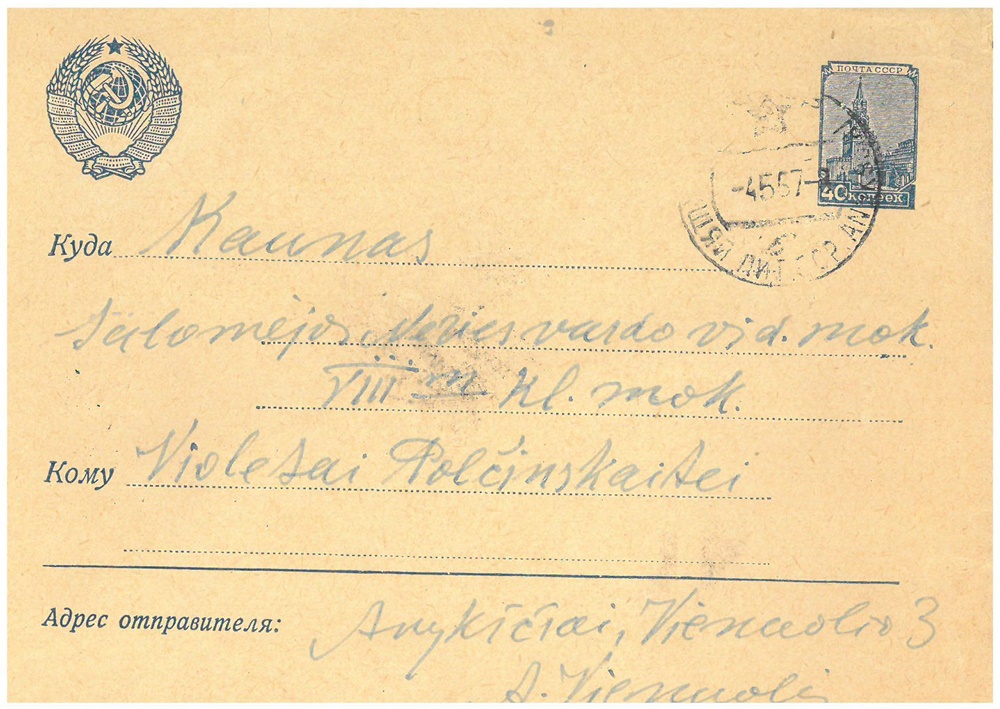 ПОЧТА СССР
40 копеек
-4557-
Куда Kaunas
Salomėjos Nėries vardo vid. mok.
VIII m kl. mok.
Кому Violetai Polčinskaitei
Адрес отправителя: Anykščiai, Vienuolio 3
A. Vienuolis